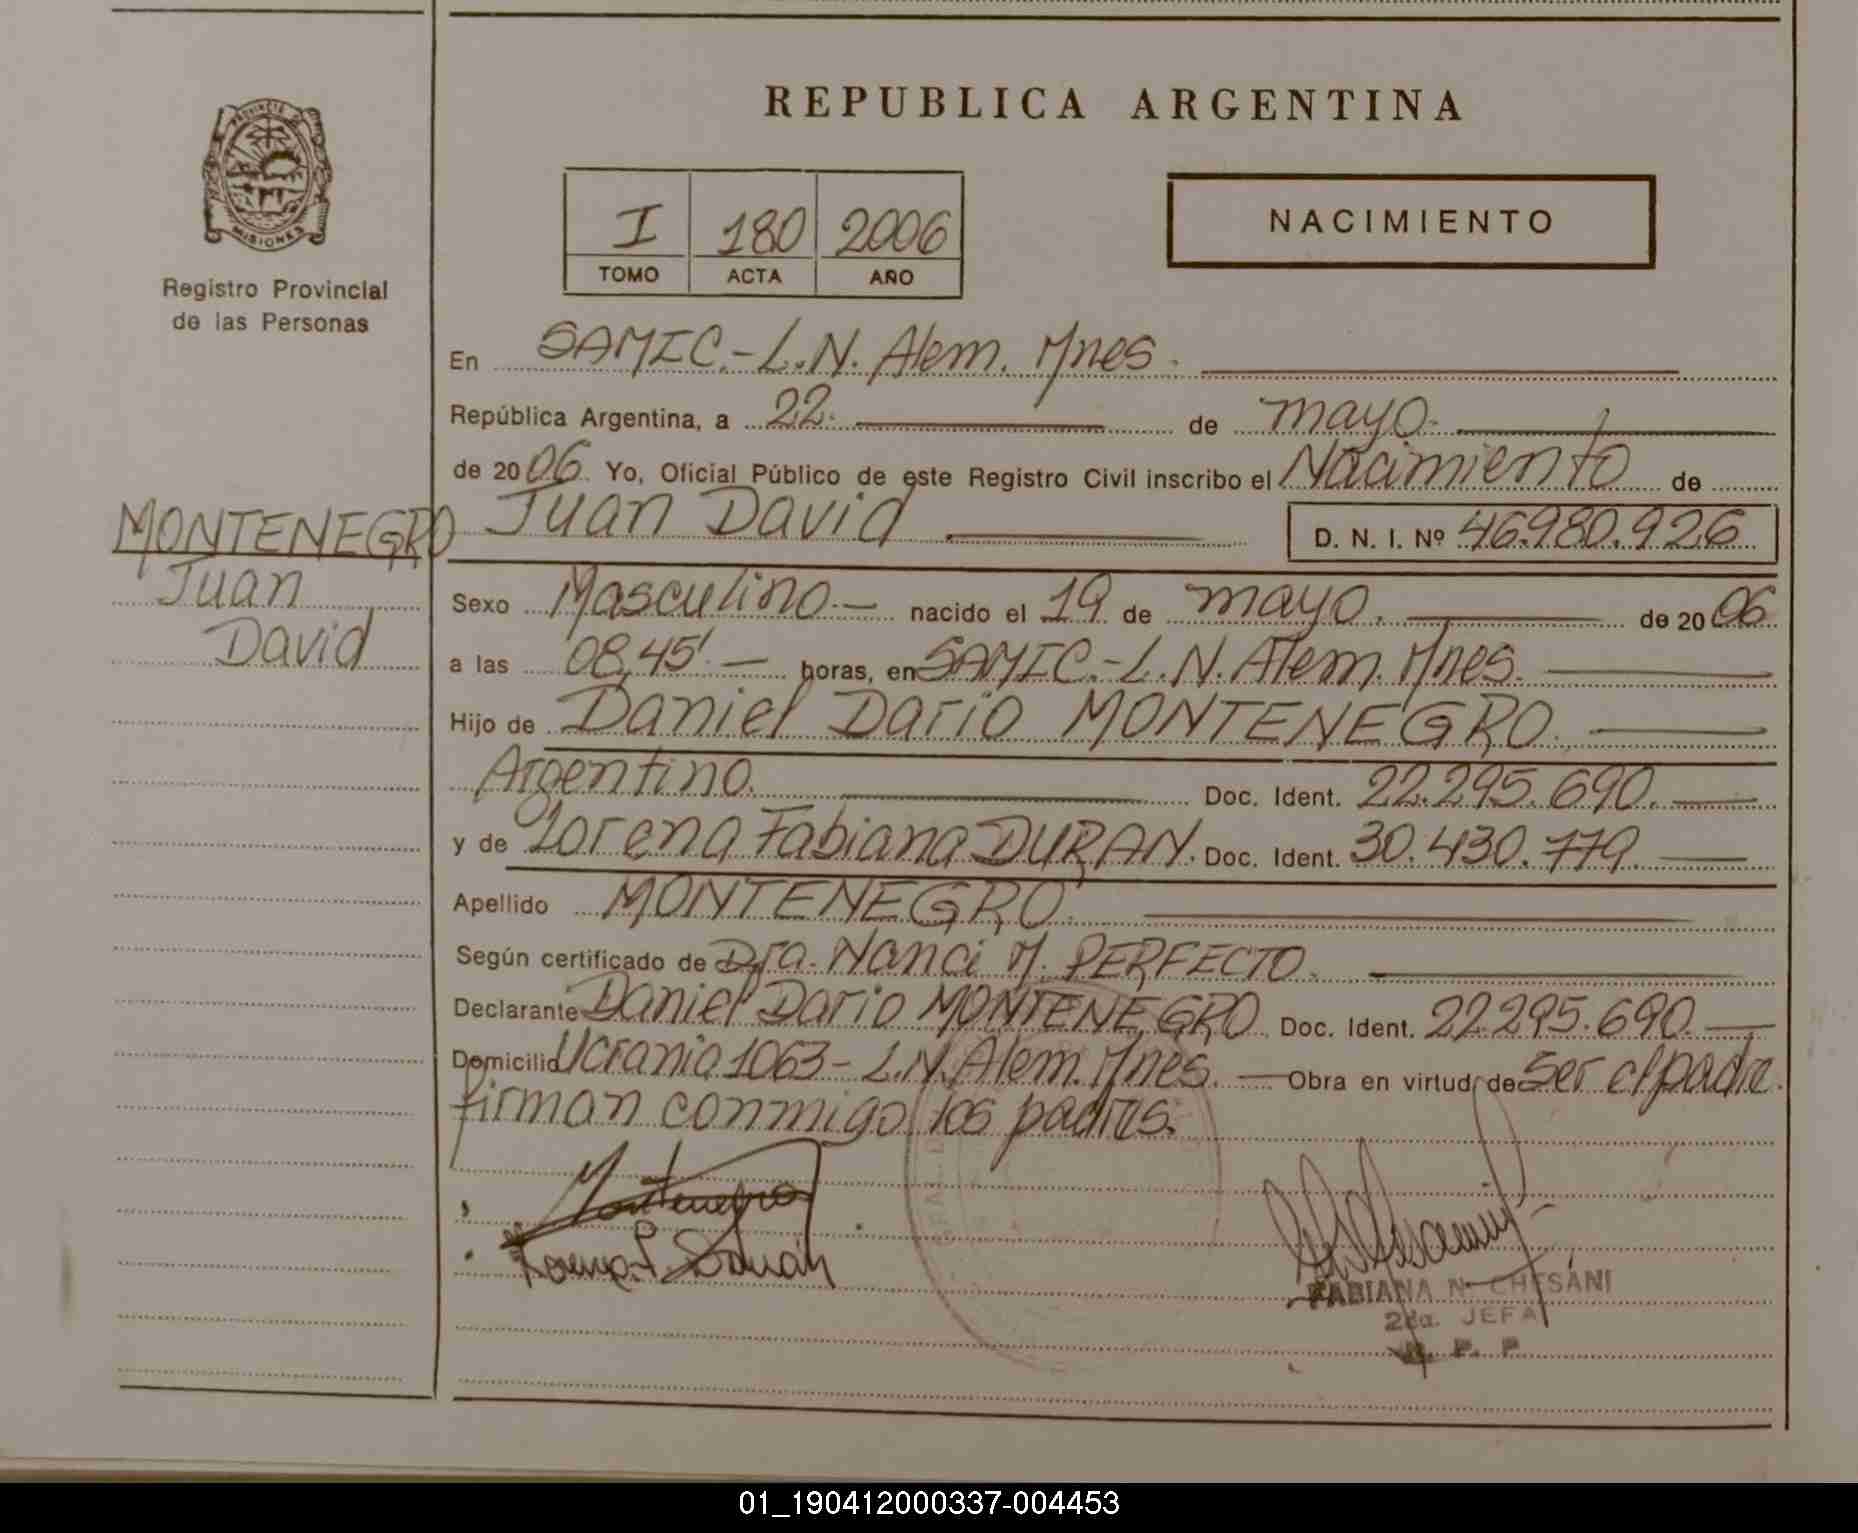 REPUBLICA ARGENTINA
PROVINCIA DE
MISIONES
Registro Provincial
de las Personas
I 180 2006
TOMO ACTA AÑO
NACIMIENTO
En SAMIC.- L.N. Alem. Mnes.
República Argentina, a 22. de mayo.
de 2006. Yo, Oficial Público de este Registro Civil inscribo el Nacimiento de
MONTENEGRO
Juan
David
Juan David
D. N. I. Nº 46.980.926
Sexo Masculino.- nacido el 19 de mayo. de 2006
a las 08,45'.- horas, en SAMIC.- L.N. Alem. Mnes.
Hijo de Daniel Dario MONTENEGRO.
Argentino. Doc. Ident. 22.295.690.
y de Lorena Fabiana DURAN. Doc. Ident. 30.430.779.
Apellido MONTENEGRO.
Según certificado de Dra. Nanci M. PERFECTO.
Declarante Daniel Dario MONTENEGRO Doc. Ident. 22.295.690.
Domicilio Ucrania 1063- L.N. Alem. Mnes. Obra en virtud de Ser el padre.
firman conmigo los padres.
Montenegro
Lorena F. Durán
FABIANA N. CHESANI
2da. JEFA
R. P. P
01_190412000337-004453